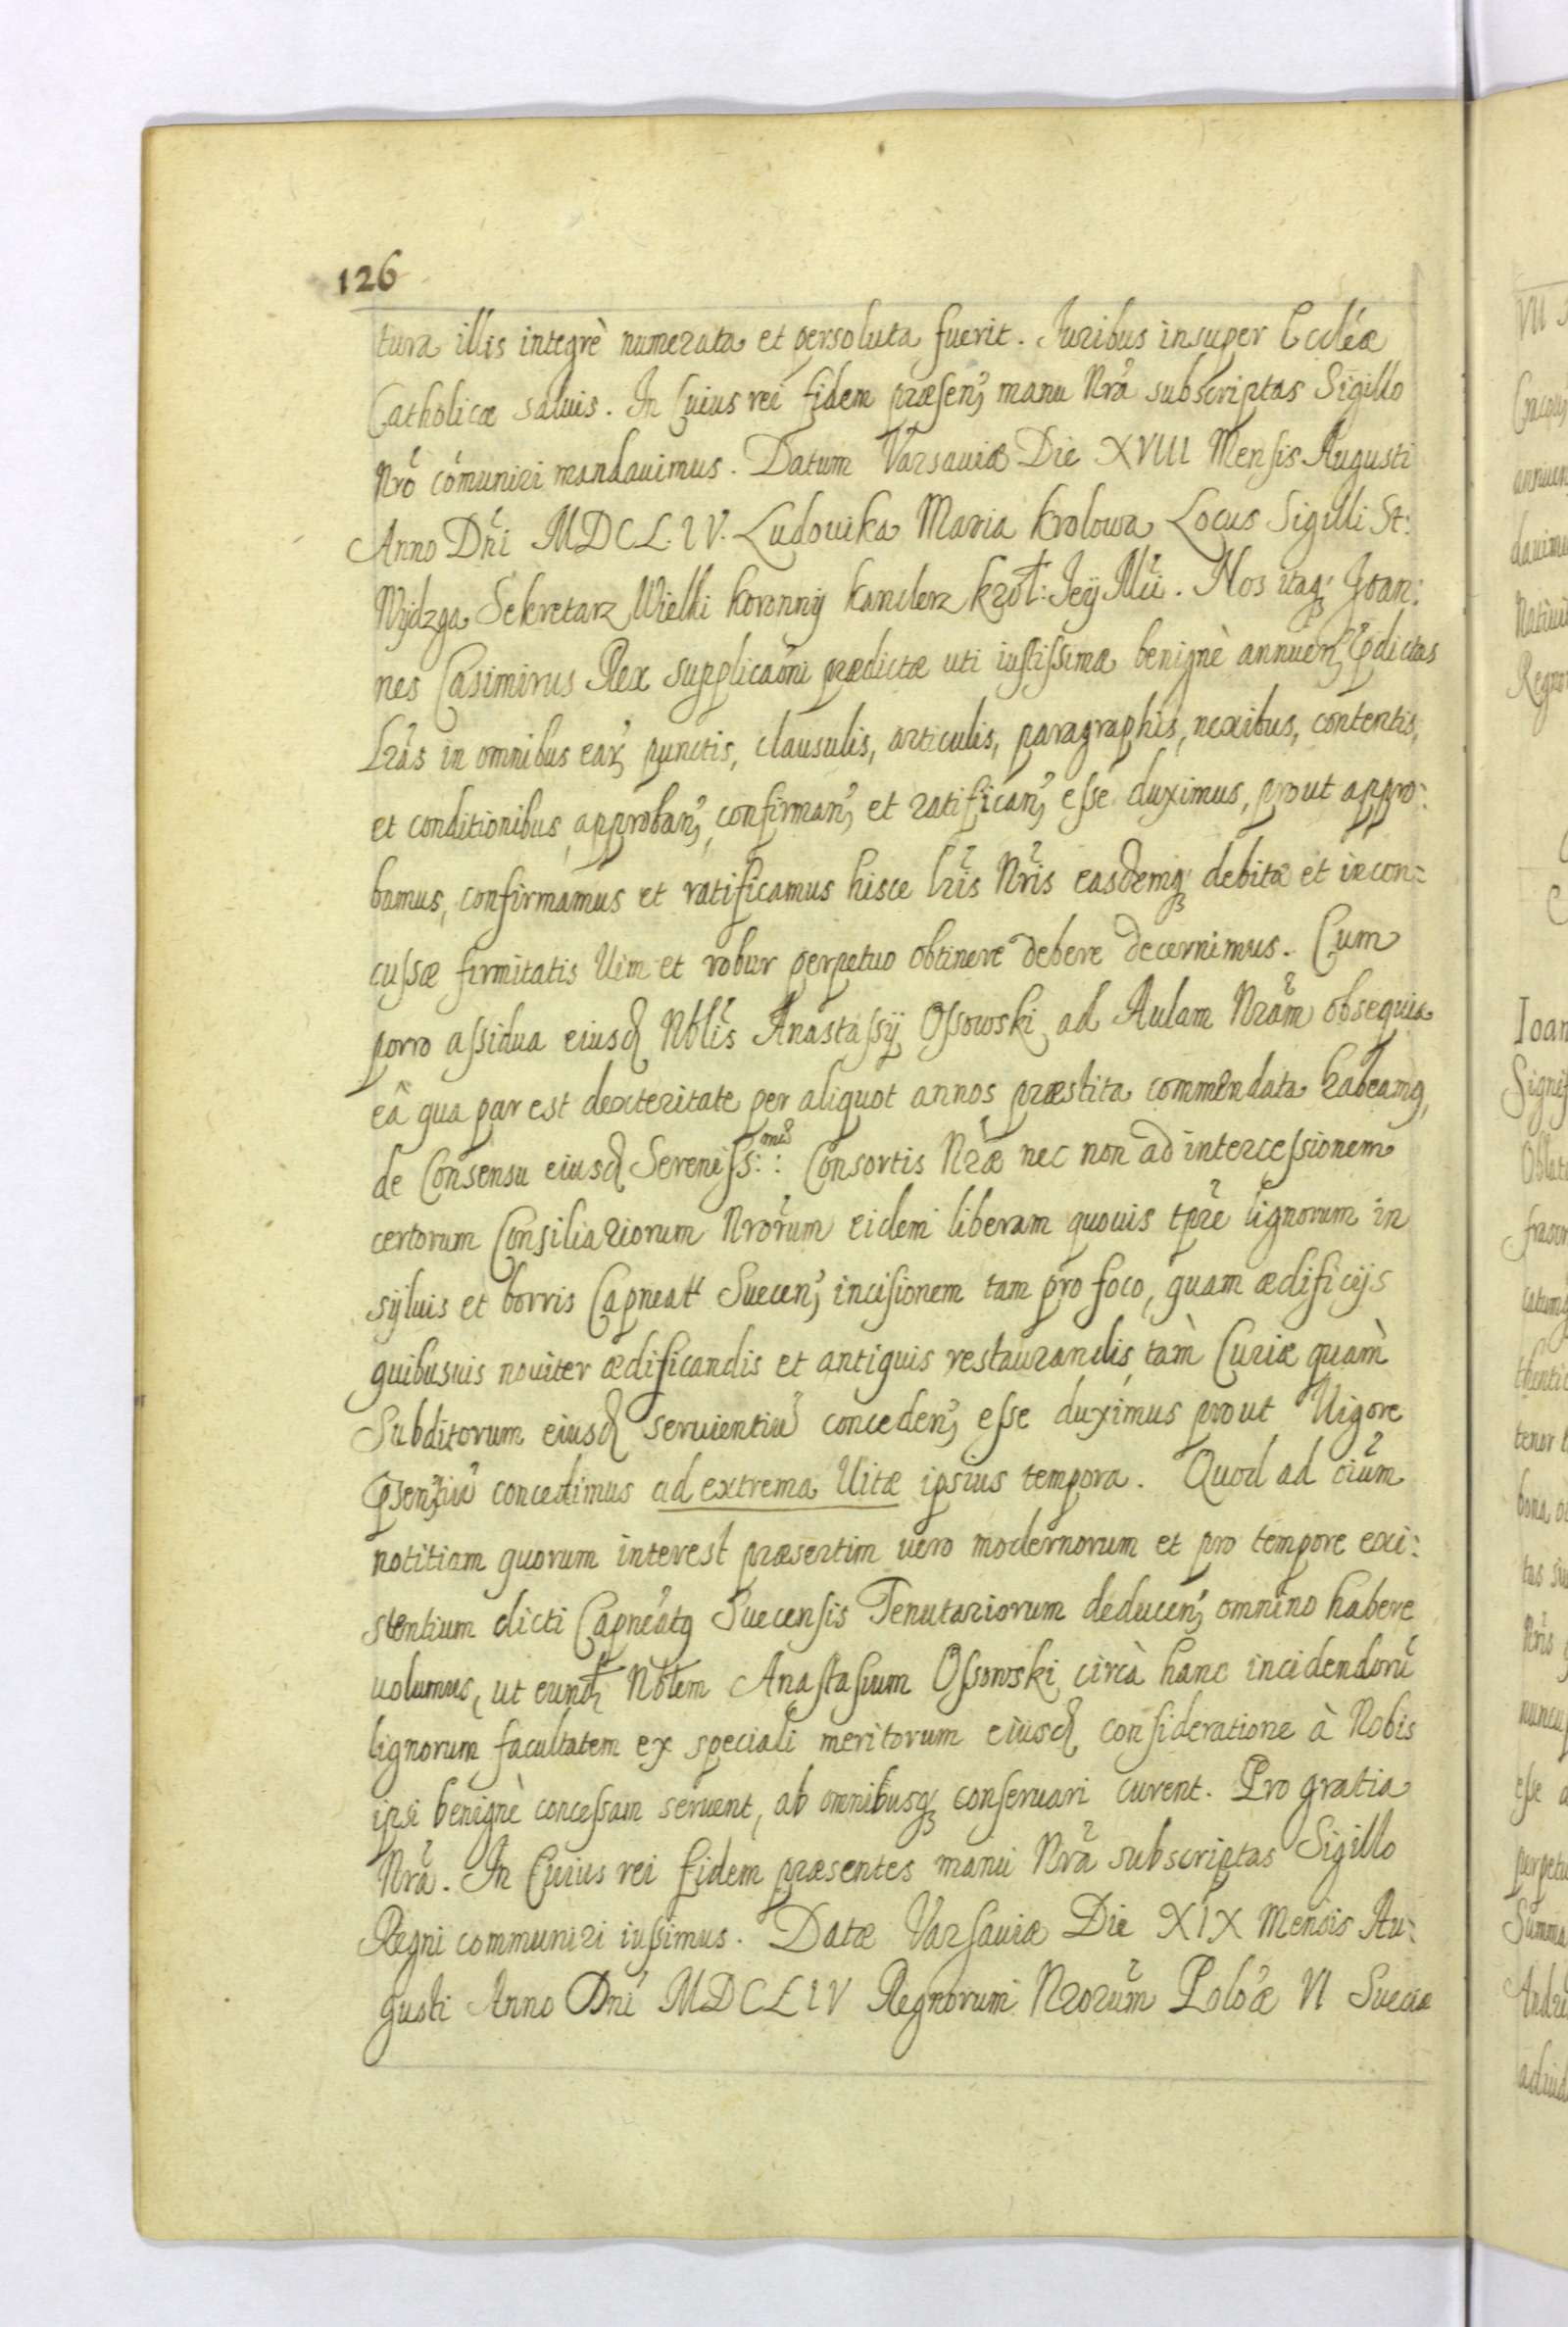 126
tura illis integrè numerata et persoluta fuerit. Juribus insuper Eccléæ
Catholicæ saluis. In cuius rei fidem præsenꝫ manu Nrã subscriptas Sigillo
Nrõ cõmuniri mandauimus. Datum Varsauiæ Die XVIII Mensis Augusti
Anno Dñi MDCL.IV. Ludouika Maria krolowa Locus Sigilli St:
Wydzga Sekretarz Wielki koronny kanclerz krol: Jey Mći. Nos itaqꝫ Joan:
nes Casimirus Rex supplicaõni prædictæ uti iustissimæ benignè annuenꝫ pdictas
Lrãs in omnibus earꝫ punctis, clausulis, articulis, paragraphis, nexibus, contentis,
et conditionibus approbanꝫ, confirmanꝫ et ratificanꝫ esse duximus, prout appro:
bamus, confirmamus et ratificamus hisce lrĩs Nrĩs easdemqꝫ debitæ et incon:
cussæ firmitatis Uim et robur perpetuo obtinere debere decernimus. Cum
porro assidua eiusd Nobĩlis Anastasÿ Ossowski ad Aulam Nrãm obsequia
eâ qua par est dexteritate per aliquot annos præstita commendata habeamq,
de Consensu eiusd Sereniss:mæ: Consortis Nræ nec non ad intercessionem
certorum Consiliariorum Nrõrum eidem liberam quouis tprẽ lignorum in
syluis et borris Capneatt Suecenꝫ incisionem tam pro foco, quam ædificijs
quibusuis nouiter ædificandis et antiquis restaurandis tàm Curiæ quàm
Subditorum eiusd seruientiũ concedenꝫ esse duximus prout Uigore
psentiũ concedimus ad extrema Uitæ ipsius tempora. Quod ad oĩum
notitiam quorum interest præsertim uero modernorum et pro tempore exi:
stentium dicti Capneatq Suecensis Tenutariorum deducenꝫ omnino habere
uolumus, ut eund Nobłem Anastasium Ossowski circà hanc incidendorũ
lignorum facultatem ex speciali meritorum eiusd consideratione à Nobis
ipsi benignè concessam seruent, ab omnibusqꝫ conseruari curent. Pro gratia
Nrã. In Cuius rei fidem præsentes manu Nrã subscriptas Sigillo
Regni communiri iussimus. Datæ Varsauiæ Die XIX Mensis Au:
gusti Anno Dñi MDCLIV Regnorum Nrorũm Polõæ VI Sueciæ